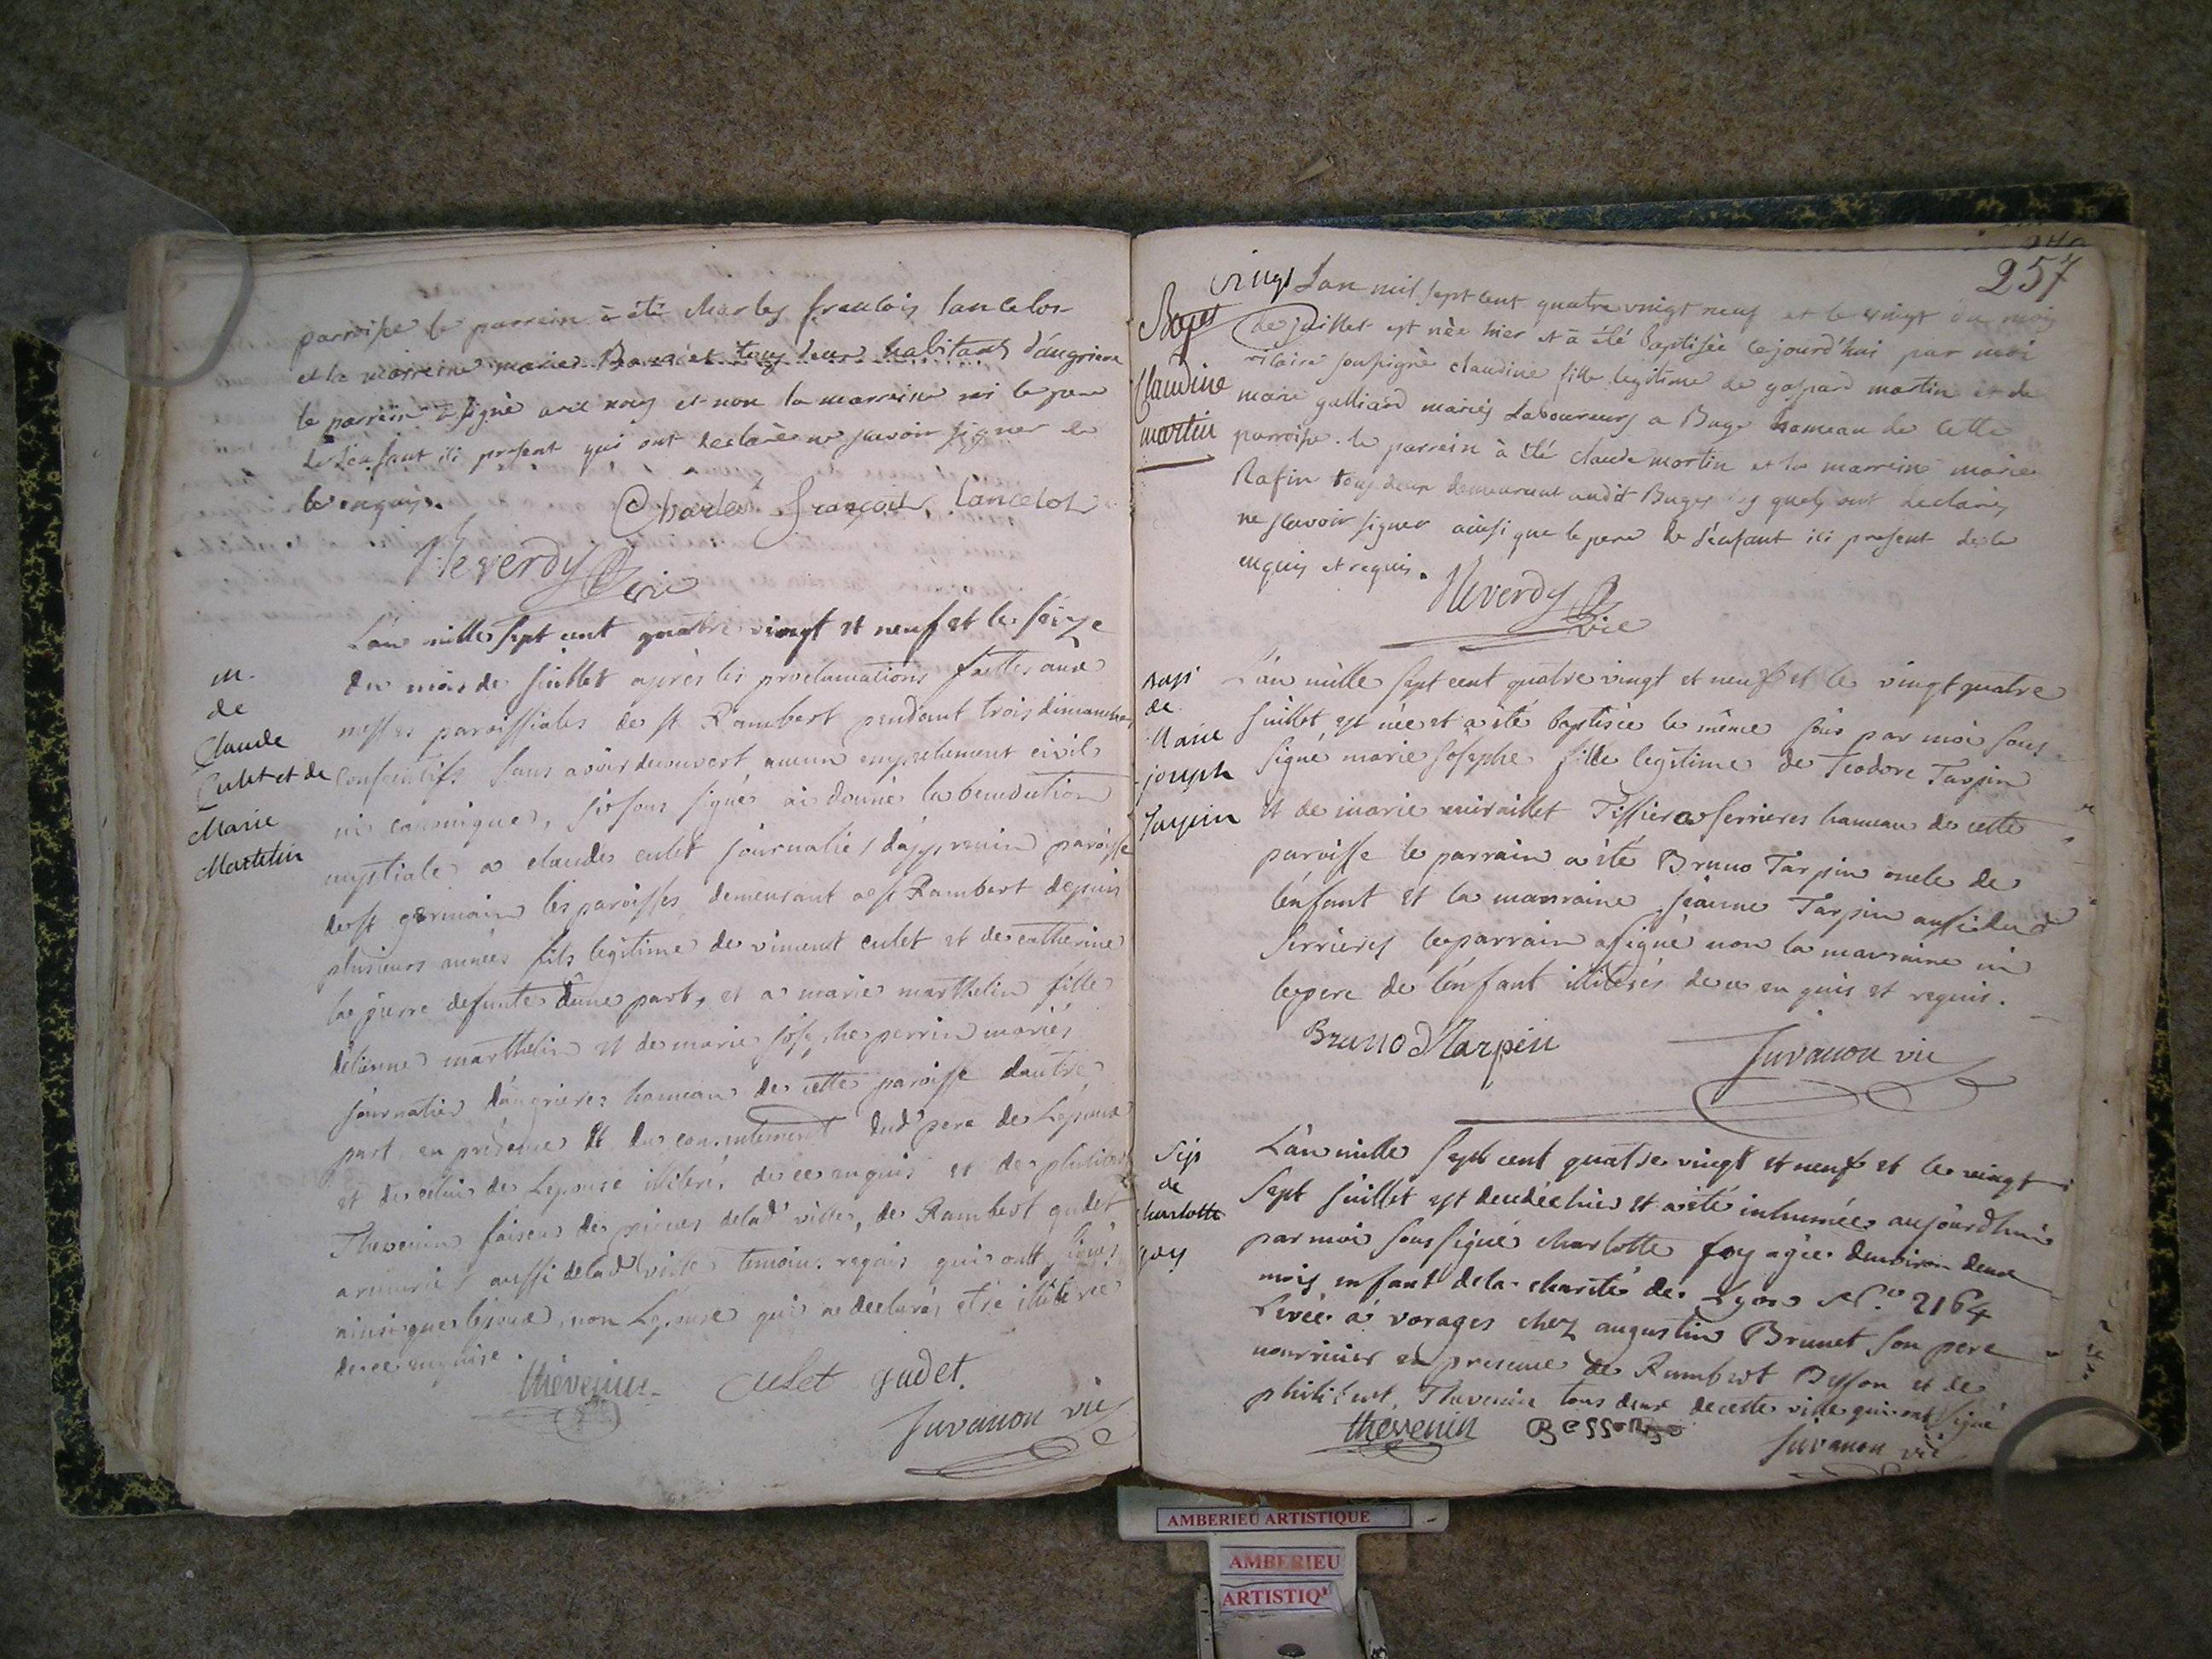 parroisse le parrein à été Charles francois lancelot
et la marreine marie tous deux habitants d'angriere
le parrein à signé avec nous et non la marreine ni le pere
de l'enfant ici present qui ont declarée ne scavoir signer de
ce enquis.
Charles François Lancelot
Reverdy vic
m.
de
Claude
Culet et de
Marie
Martelin
L'an mille sept cent quatre vingt et neuf et le seize
du mois de juillet après les proclamations faittes aux
messes paroissiales de st Rambert pendant trois dimanches
consecutifs sans avoir decouvert aucun empechement civil
ni canonique, je sous signé ai donné la benediction
nuptiale a claude culet journalier paroisse
de st germain les paroisses demeurant a st Rambert depuis
plusieurs années fils legitime de vincent culet et de catherine
la pierre defunte d'une part, et a marie marthelin fille
d'etienne marthelin et de marie josephe perrin mariés
journalier d'angrieres hameau de cette paroisse dautre
part, en présence et du consentement dud pere de Lepoux
et de celui de Lepouse illiteré, de ce enquis et de
Thevenin faiseur de delad ville, de Rambert gudet
armurier aussi delad ville temoins requis qui ont signés
ainsi que lepoux, non Lepouse qui a declaré etre illiterée
de ce enquise.
thevenin culet gudet.
Juvanon vic
257
vingt
Bapt
Claudine
martin
L'an mil sept cent quatre vingt neuf et le vingt du mois
de juillet est née hier et à été baptisée cejourd'hui par moi
vicaire soussigné claudine fille legitime de gaspard martin et de
marie galliard mariés Laboureurs a Buges hameau de cette
parroisse. le parrein à été claude martin et la marreine marie
Rafin tous deux demeurant audit Buges les quels ont declarés
ne scavoir signer ainsi que le pere de l'enfant ici present de ce
enquis et requis.
Reverdy vic
Bapt
de
Marie
joseph
Tarpin
L'an mille sept cent quatre vingt et neuf et le vingt quatre
juillet est née et a été baptisée le même jour par moi sous
signé marie josephe fille legitime de Teodore Tarpin
et de marie miraillet Tissier a serrieres hameau de cette
paroisse le parrain a été Bruno Tarpin oncle de
lenfant et la marraine jeanne Tarpin aussi dud
serrieres le parrain a signé non la marraine ni
le pere de lenfant illiterés de ce enquis et requis.
Bruno Tarpin
Juvanon vic
Sep
de
charlotte
foy
L'an mille sept cent quatre vingt et neuf et le vingt
sept juillet est decedée hier et a été inhumée aujourdhui
par moi sous signé charlotte foy agée denviron deux
mois enfant de la charité de Lyon N.o 2164
Livée à vorages chez augustin Brunet son pere
nourricier en presence de Rambert Besson et de
philibert Thevenin tous deux de cette ville qui ont signé
thevenin Besson
Juvanon vic
AMBERIEU ARTISTIQUE
AMBERIEU
ARTISTIQ